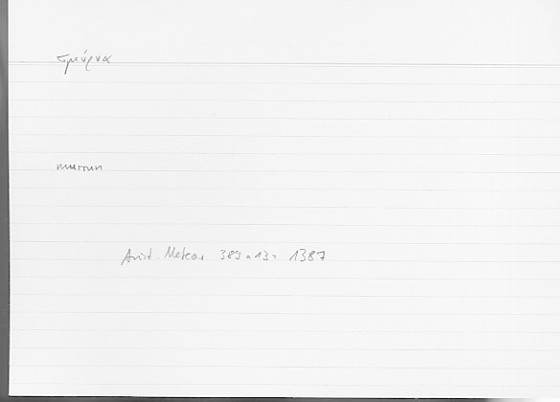 σμύρνα
murrun
Arist. Meteor 389a13 = 1387